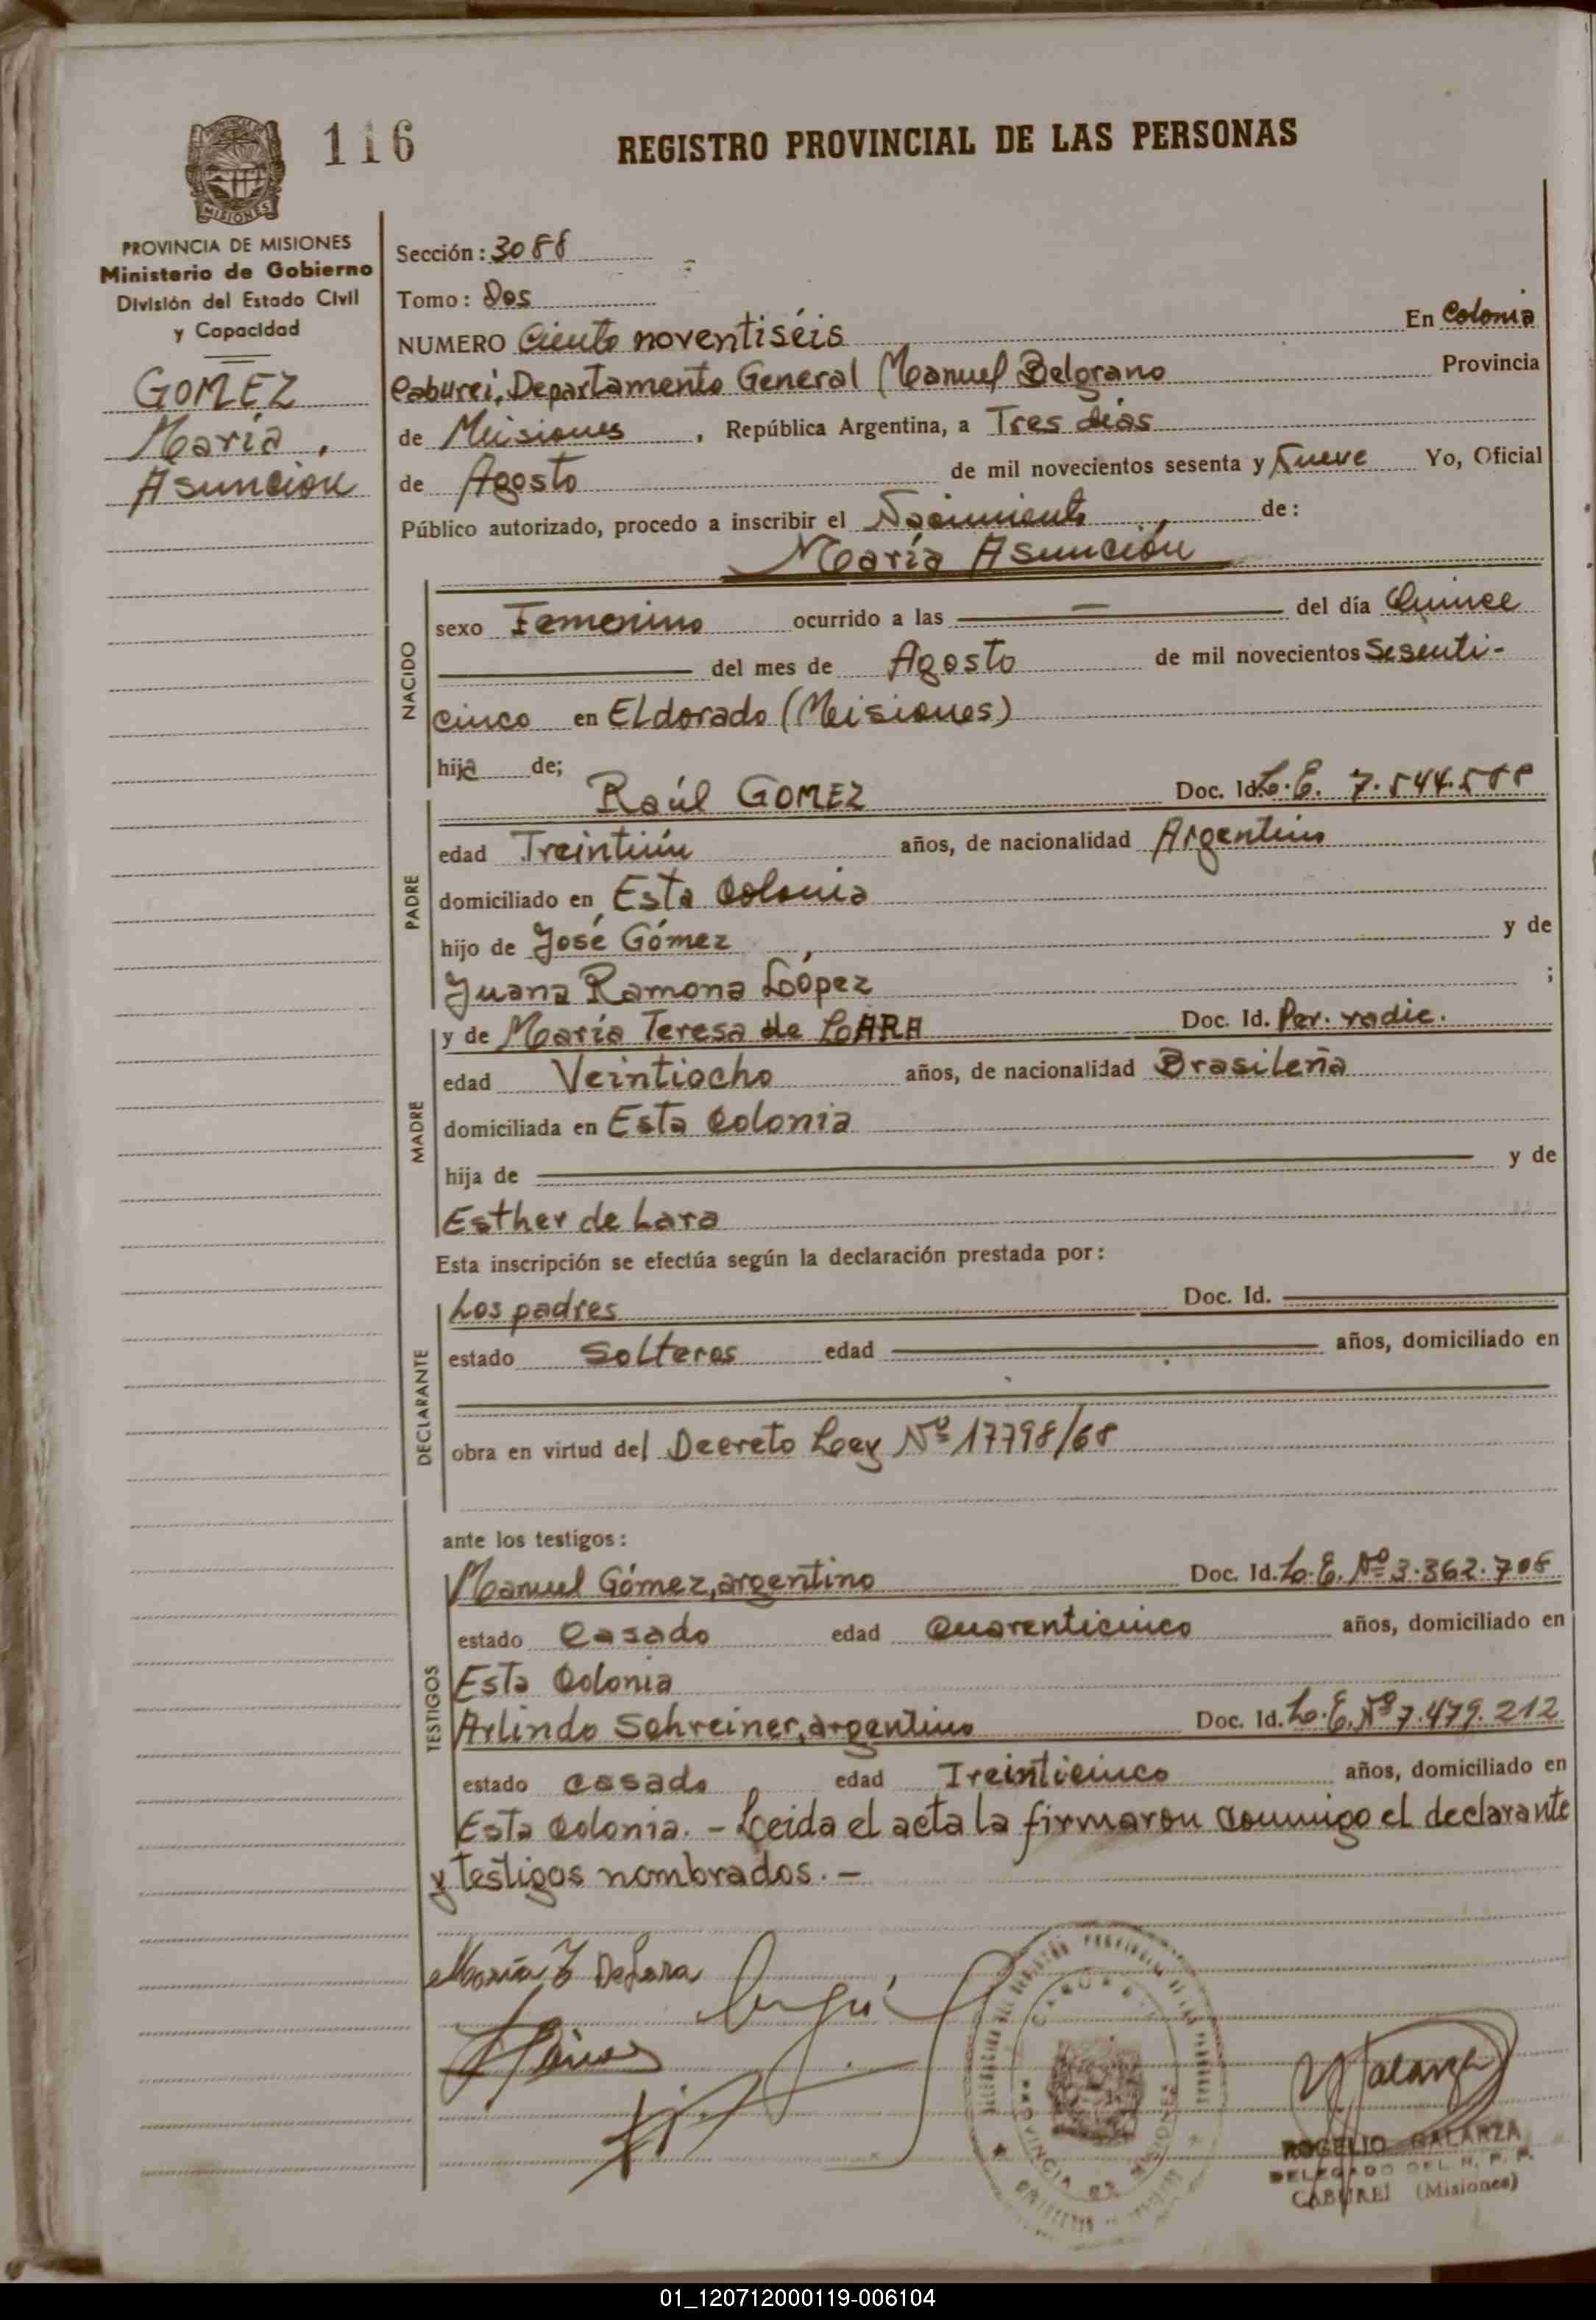 116
REGISTRO PROVINCIAL DE LAS PERSONAS
MISIONES
PROVINCIA DE MISIONES
Ministerio de Gobierno
División del Estado Civil
y Capacidad
GOMEZ
María
Asunción
Sección: 3088
Tomo: Dos
NUMERO Ciento noventiséis En Colonia
Caburei, Departamento General Manuel Belgrano Provincia
de Misiones, República Argentina, a Tres días
de Agosto de mil novecientos sesenta y Nueve Yo, Oficial
Público autorizado, procedo a inscribir el Nacimiento de:
María Asunción
NACIDO
sexo Femenino ocurrido a las — del día Quince
del mes de Agosto de mil novecientos Sesenti-
cinco en ELdorado (Misiones)
hija de;
PADRE
Raúl GOMEZ Doc. Id. L.E. 7.544.588
edad Treintiún años, de nacionalidad Argentino
domiciliado en Esta Colonia
hijo de José Gómez, y de
Juana Ramona López ;
MADRE
y de María Teresa de LARA Doc. Id. Per. radic.
edad Veintiocho años, de nacionalidad Brasileña
domiciliada en Esta Colonia
hija de y de
Esther de Lara
Esta inscripción se efectúa según la declaración prestada por:
DECLARANTE
Los padres Doc. Id.
estado Solteros edad años, domiciliado en
obra en virtud del Decreto Ley Nº 17798/68
ante los testigos:
TESTIGOS
Manuel Gómez, argentino Doc. Id. L.E. Nº 3.362.708
estado Casado edad Cuarenticinco años, domiciliado en
Esta Colonia
Arlindo Schreiner, argentino Doc. Id. L.E. Nº 7.479.212
estado casado edad Treinticinco años, domiciliado en
Esta Colonia. - Leida el acta la firmaron conmigo el declarante
y testigos nombrados. -
María T DeLara
PROVINCIA DE MISIONES
Galarza
ROGELIO GALARZA
DELEGADO DEL R. P. P.
CABUREI (Misiones)
01_120712000119-006104